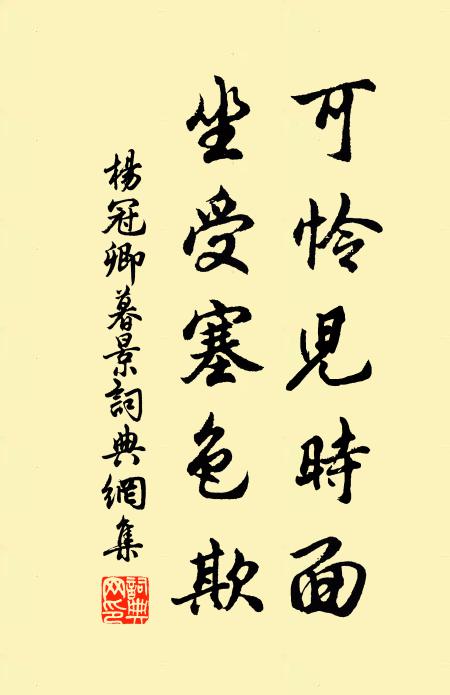 可怜兒時面
坐受塞色欺
楊冠卿暮景詞典網集
詞典網印